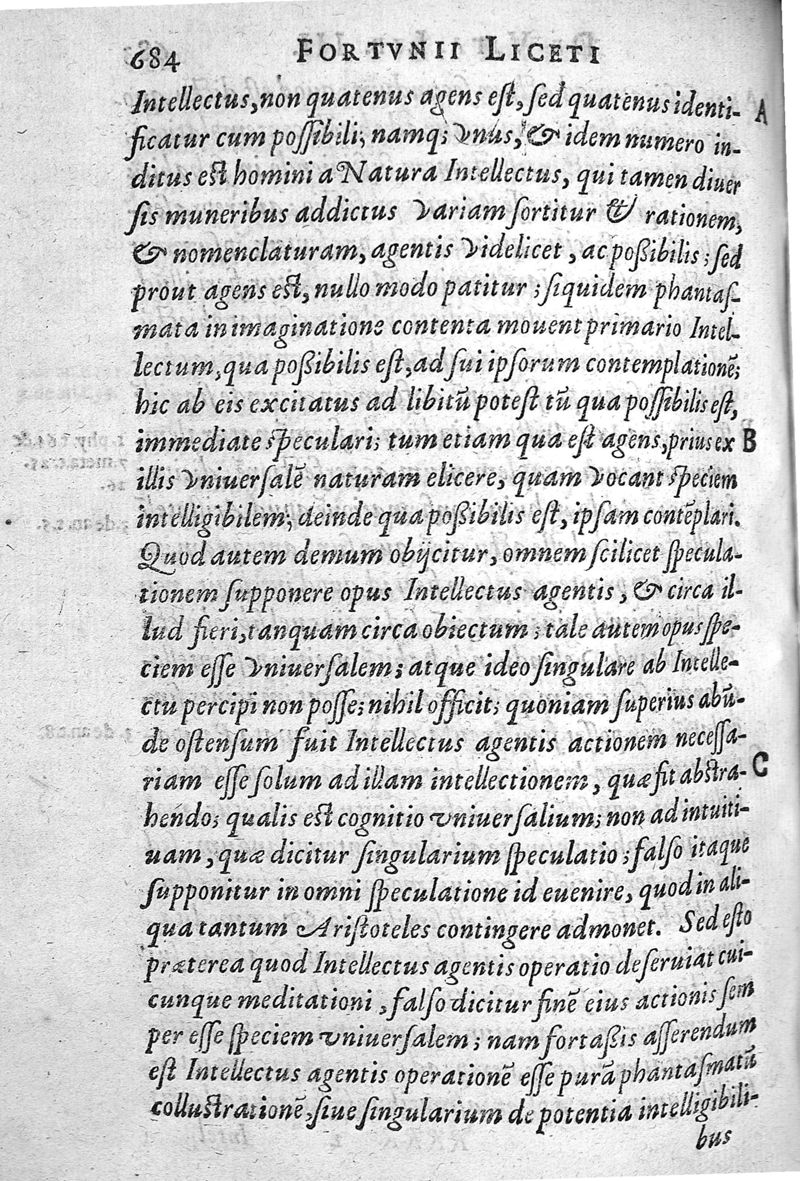 684 FORTVNII LICETI
Intellectus, non quatenus agens est, sed quatenus identi- A
ficatur cum possibili; namq; vnus, & idem numero in-
ditus est homini a Natura Intellectus, qui tamen diuer
sis muneribus addictus variam sortitur & rationem,
& nomenclaturam, agentis videlicet, ac poßibilis; sed
prout agens est, nullo modo patitur; siquidem phantas-
mata in imaginatione contenta mouent primario Intel-
lectum, qua poßibilis est, ad sui ipsorum contemplationē;
hic ab eis excitatus ad libitū potest tū qua possibilis est,
immediate speculari; tum etiam qua est agens, prius ex B
illis vniuersalē naturam elicere, quam vocant speciem
intelligibilem; deinde qua poßibilis est, ipsam contēplari.
Quod autem demum obijcitur, omnem scilicet specula-
tionem supponere opus Intellectus agentis, & circa il-
lud fieri, tanquam circa obiectum; tale autem opus spe-
ciem esse vniuersalem; atque ideo singulare ab Intelle-
ctu percipi non posse; nihil officit; quoniam superius abū-
de ostensum fuit Intellectus agentis actionem necessa-
riam esse solum ad illam intellectionem, quæ fit abstra- C
hendo; qualis est cognitio vniuersalium; non ad intuiti-
uam, quæ dicitur singularium speculatio; falso itaque
supponitur in omni speculatione id euenire, quod in ali-
qua tantum Aristoteles contingere admonet. Sed esto
præterea quod Intellectus agentis operatio deseruiat cui-
cunque meditationi, falso dicitur finē eius actionis sem
per esse speciem vniuersalem; nam fortaßis asserendum
est Intellectus agentis operationē esse purā phantasmatū
collustrationē, siue singularium de potentia intelligibili-
bus